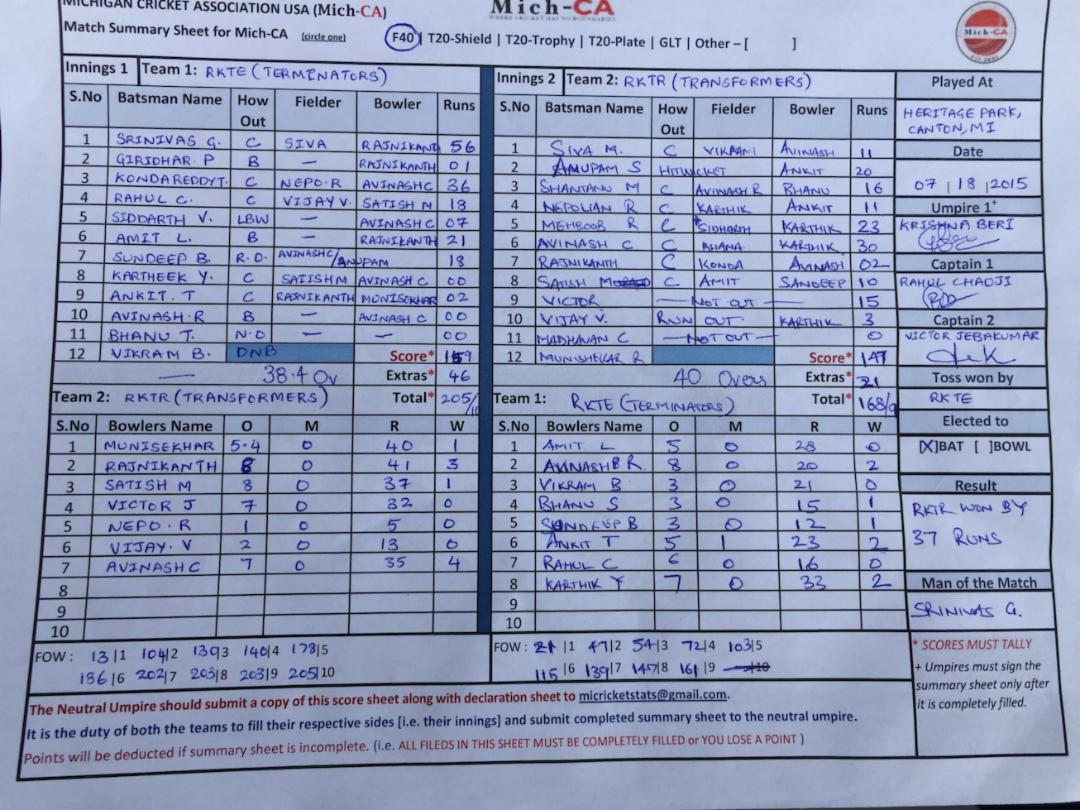 MICHIGAN CRICKET ASSOCIATION USA (Mich-CA)
Mich-CA
Mich-CA
Match Summary Sheet for Mich-CA (circle one) F40 | T20-Shield | T20-Trophy | T20-Plate | GLT | Other – [ ]
Innings 1 Team 1: RKTE (TERMINATORS)
S.No Batsman Name How Out Fielder Bowler Runs
1 SRINIVAS G. C SIVA RAJNIKAND 56
2 GIRIDHAR. P B — RAJNIKANTH 01
3 KONDAREDDYT. C NEPO.R AVINASHC 36
4 RAHUL C. C VIJAY V. SATISH M 18
5 SIDDARTH V. LBW — AVINASH C 07
6 AMIT L. B — RAJNIKANTH 21
7 SUNDEEP B. R.O. AVINASHC/ANUPAM 18
8 KARTHEEK Y. C SATISHM AVINASH C 00
9 ANKIT. T C RAJNIKANTH MUNISEKHAR 02
10 AVINASH.R B — AVINASH C 00
11 BHANU T. N.O — — 00
12 VIKRAM B. DNB Score* 159
— 38.4 Ov Extras* 46
Team 2: RKTR (TRANSFORMERS) Total* 205/10
S.No Bowlers Name O M R W
1 MUNISEKHAR 5.4 0 40 1
2 RAJNIKANTH 8 0 41 3
3 SATISH M 8 0 37 1
4 VICTOR J 7 0 32 0
5 NEPO.R 1 0 5 0
6 VIJAY. V 2 0 13 0
7 AVINASHC 7 0 35 4
8
9
10
FOW : 13|1 104|2 130|3 140|4 178|5
186|6 202|7 203|8 203|9 205|10
Innings 2 Team 2: RKTR (TRANSFORMERS)
S.No Batsman Name How Out Fielder Bowler Runs
1 SIVA M. C VIKRAM AVINASH 11
2 ANUPAM S HITWICKET ANKIT 20
3 SHANTANU M C AVINASH R BHANU 16
4 NEPOLIAN R C KARTHIK ANKIT 11
5 MEHBOOB R C SIDHARTH KARTHIK 23
6 AVINASH C C BHANA KARTHIK 30
7 RAJNIKANTH C KONDA AVINASH 02
8 SATISH C AMIT SANDEEP 10
9 VICTOR — NOT OUT — 15
10 VIJAY V. RUN OUT. KARTHIK 3
11 MADHAVAN C — NOT OUT — 0
12 MUNISHEKAR R Score* 147
40 Overs Extras* 21
Team 1: RKTE (TERMINATORS) Total* 168/9
S.No Bowlers Name O M R W
1 AMIT L 5 0 28 0
2 AVINASH R 8 0 20 2
3 VIKRAM B 3 0 21 0
4 BHANU S 3 0 15 1
5 SUNDEEP B 3 0 12 1
6 ANKIT T 5 1 23 2
7 RAHUL C 6 0 16 0
8 KARTHIK Y 7 0 33 2
9
10
FOW : 21|1 47|2 54|3 72|4 103|5
115|6 139|7 147|8 161|9
Played At
HERITAGE PARK,
CANTON, MI
Date
07|18|2015
Umpire 1+
KRISHNA BERI
Captain 1
RAHUL CHADJI
Captain 2
VICTOR JEBAKUMAR
Toss won by
RKTE
Elected to
[X]BAT [ ]BOWL
Result
RKTR WON BY
37 RUNS
Man of the Match
SRINIVAS G.
* SCORES MUST TALLY
+ Umpires must sign the
summary sheet only after
it is completely filled.
The Neutral Umpire should submit a copy of this score sheet along with declaration sheet to micricketstats@gmail.com.
It is the duty of both the teams to fill their respective sides [i.e. their innings] and submit completed summary sheet to the neutral umpire.
Points will be deducted if summary sheet is incomplete. (i.e. ALL FILEDS IN THIS SHEET MUST BE COMPLETELY FILLED or YOU LOSE A POINT )